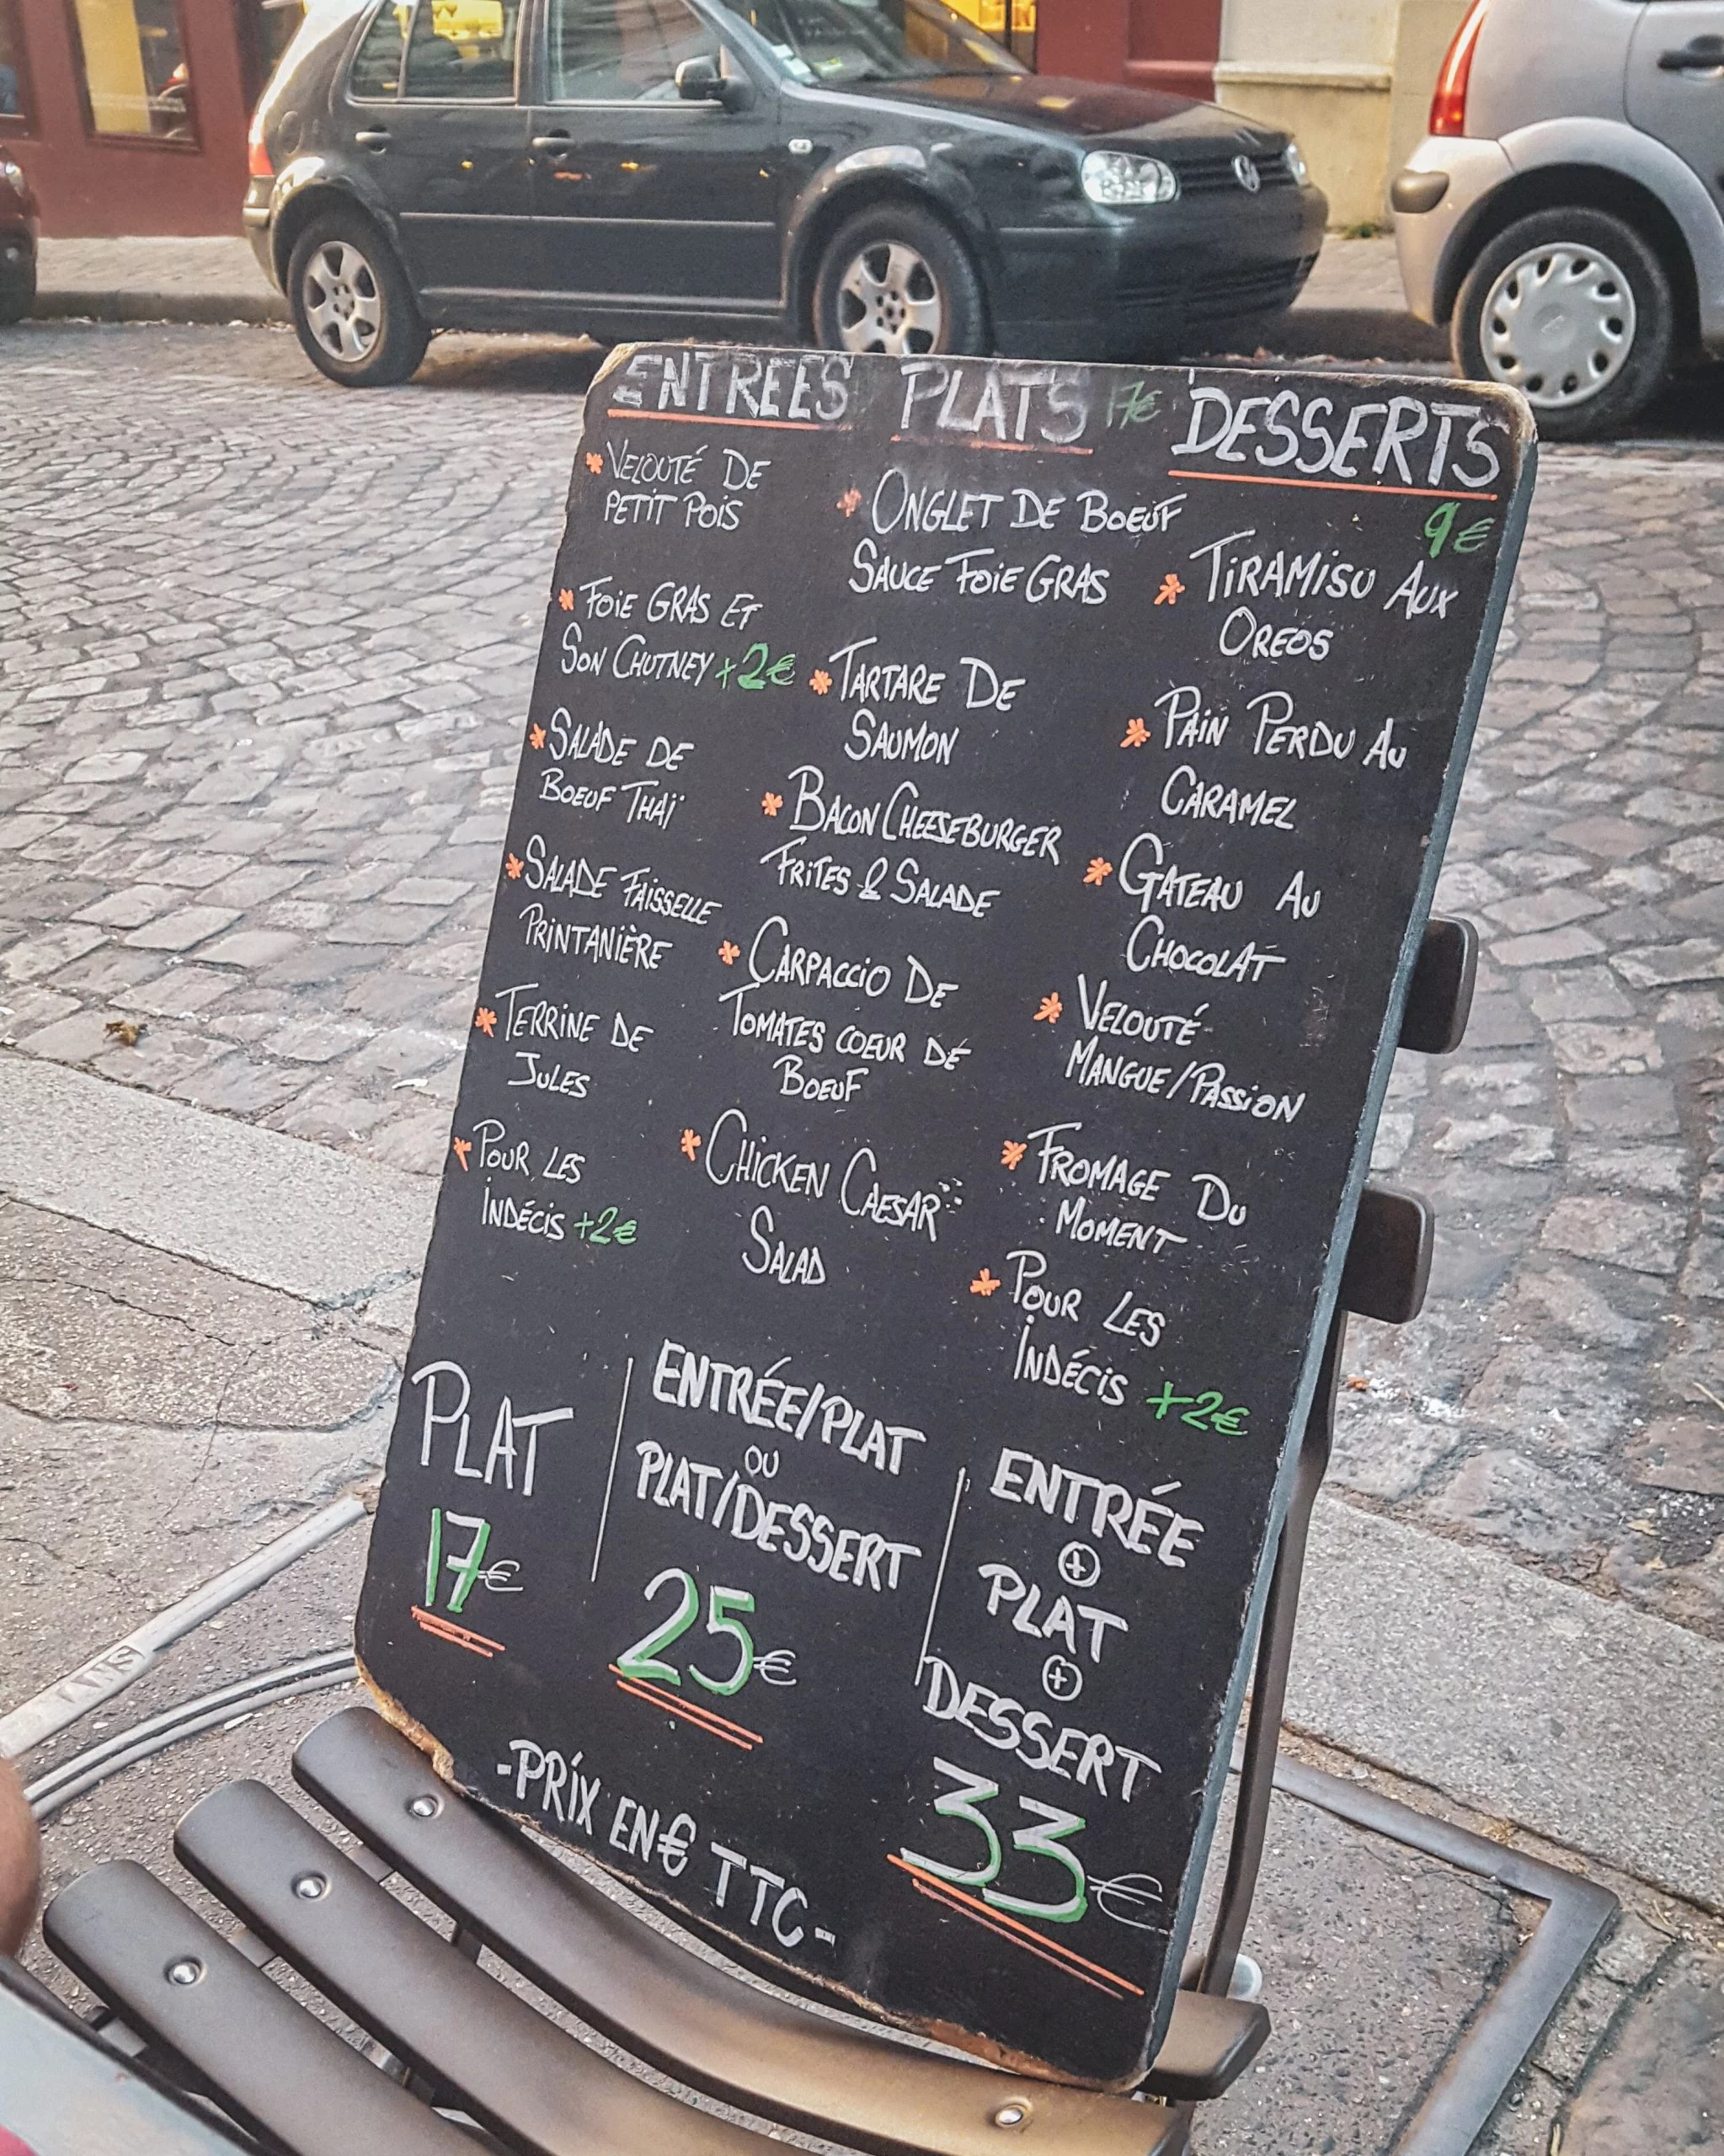 ENTREES
VELOUTÉ DE
PETIT POIS
FOIE GRAS ET
SON CHUTNEY +2€
SALADE DE
BOEUF THAÏ
SALADE FAISSELLE
PRINTANIÈRE
TERRINE DE
JULES
POUR LES
INDÉCIS +2€
PLATS 17€
ONGLET DE BOEUF
SAUCE FOIE GRAS
TARTARE DE
SAUMON
BACON CHEESEBURGER
FRITES & SALADE
CARPACCIO DE
TOMATES COEUR DE
BOEUF
CHICKEN CAESAR
SALAD
DESSERTS
9€
TIRAMISU AUX
OREOS
PAIN PERDU AU
CARAMEL
GATEAU AU
CHOCOLAT
VELOUTÉ
MANGUE/PASSION
FROMAGE DU
MOMENT
POUR LES
INDÉCIS +2€
PLAT
17€
ENTRÉE/PLAT
OU
PLAT/DESSERT
25€
ENTRÉE
+
PLAT
+
DESSERT
33€
-PRIX EN € TTC-
ANS